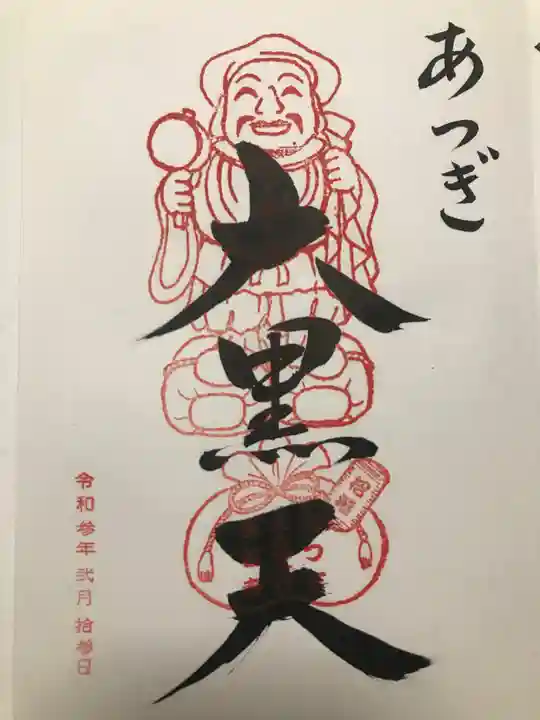 あつぎ
大黒天
令和参年弐月拾参日